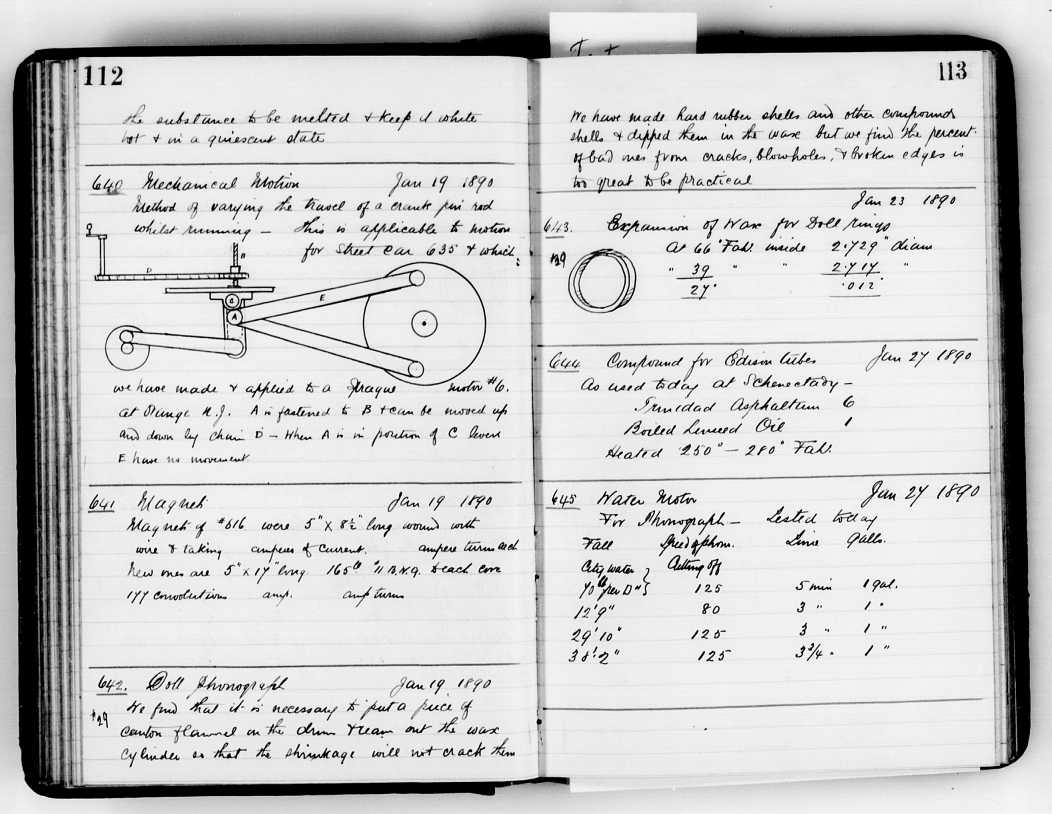 112
the substance to be melted & keep it white
hot & in a quiescent state
640 Mechanical Motion Jan 19 1890
Method of varying the travel of a crank pin rod
whilst running — This is applicable to motion
for Street Car 635 & which
B
D
C
E
A
we have made & applied to a Sprague motor #6.
at Orange N.J. A is fastened to B & can be moved up
and down by chain D — When A is in position of C levers
E have no movement
641 Magnets Jan 19 1890
Magnets of #616 were 5" x 8½" long wound with
wire & taking amperes of current. ampere turns each
New ones are 5" x 17" long. 165 lb #11 B.&.G. to each core
177 convolutions amp. amp turns
642. Doll Phonograph Jan 19 1890
#29
We find that it is necessary to put a piece of
canton flannel on the drum & ream out the wax
cylinder so that the shrinkage will not crack them
113
We have made hard rubber shells and other compound
shells & dipped them in the wax but we find the percent.
of bad ones from cracks, blowholes, & broken edges is
too great to be practical
Jan 23 1890
643. Expansion of Wax for Doll rings
#29
At 66° Fah. inside 2.729" diam
" 39 " " 2.717 "
27° .012
644 Compound for Edison tubes Jan 27 1890
As used today at Schenectady —
Trinidad Asphaltum 6
Boiled Linseed Oil 1
Heated 250° — 280° Fah.
645 Water Motor Jan 27 1890
For Phonograph — Tested today
Fall Speed of phon. Time Galls.
City water Cutting off
70 lb per □" 125 5 min 1 gal.
12' 9" 80 3 " 1 "
29' 10" 125 3 " 1 "
38' 2" 125 3¾ " 1 "